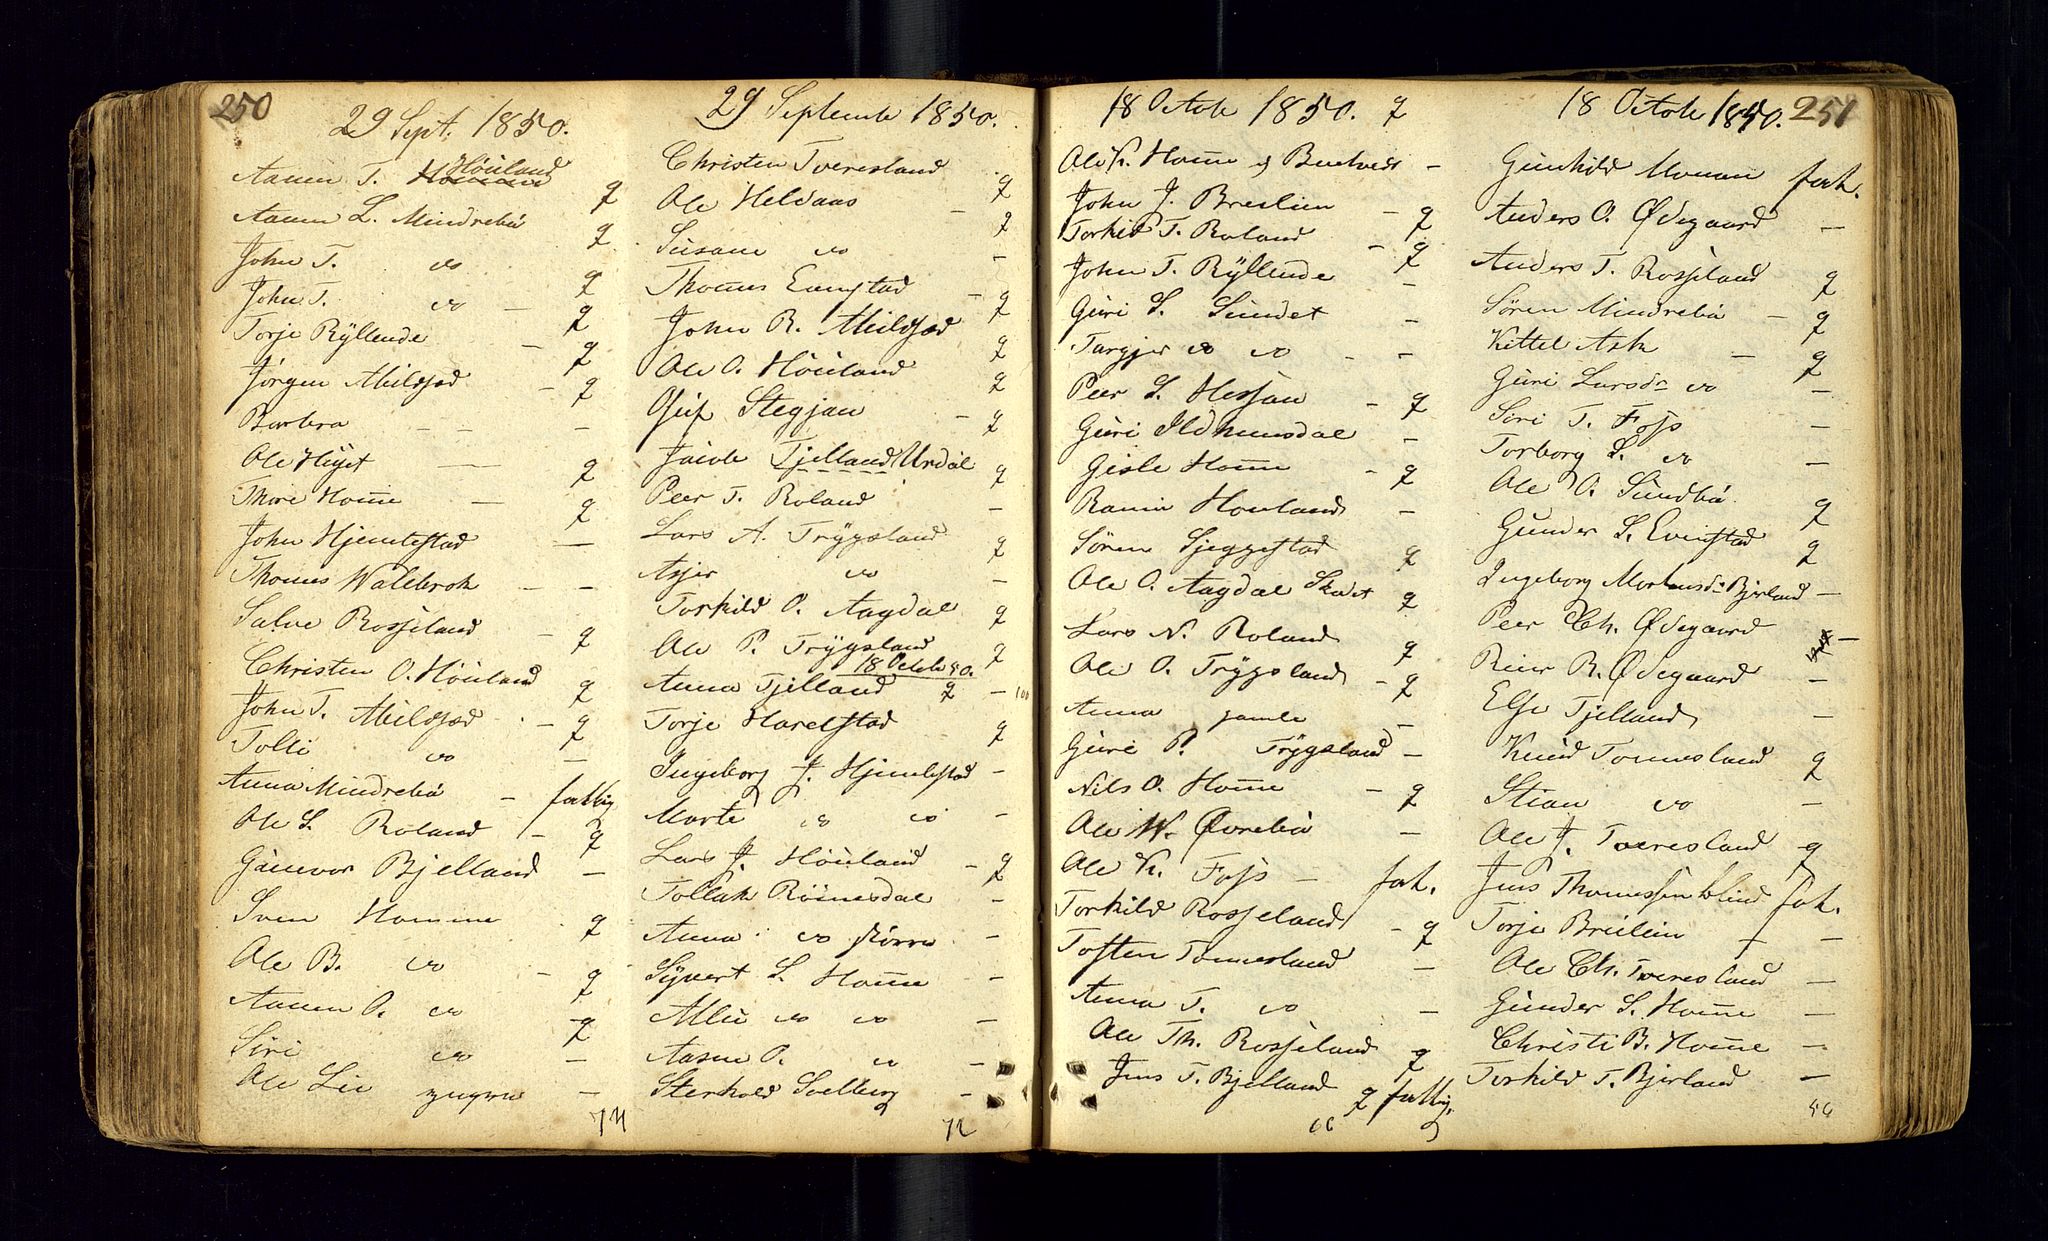 250
29 Sept. 1850.
Aanen T. Höuland
Aanen L. Mindrebö q
John T. do q
John T. do — q
Torje Ryllende — q
Jörgen Abildsød — q
Barbra - - -
Ole Hüget — q
Thore Home — q
John Hjemlestad —
Thomes Wallebrok - -
Salve Rosseland - q
Christen O. Höuland q
John T. Abildsød - q
Tolli do —
Anna Mindrebö - fattig
Ole L Roland - q
Günevor Bjelland —
Sven Homme q
Ole B. do - q
Aanen O. do q
Siri do —
Ole Lie yngre —
74
29 Septembr 1850.
Christen Tveresland q
Ole Heldaas - q
Susane do —
Thomes Evenstad - q
John R. Abildsød q
Ole O. Höuland q
Osuf Stegjan - q
Jacob Tjelland Urdal q
Peer T. Roland —
Lars A. Trygsland q
Asjer do —
Torkild O. Aagdal q
Ole P. Trygsland q
18 Octob 50.
Anna Tjelland q —
Torje Harelstad q
Ingeborg J. Hjemlestad —
Marte do do -
Lars J. Höuland - q
Tollak Röinesdal -
Anna do större —
Syvert L. Home —
Allis do do —
Aasne O. do -
Sterkold Solberg -
72
18 Octob 1850. q
Ole K. Home —
John J. Breilien - q
Torkild T. Roland - q
John T. Ryllende —
Guri S. Sundet —
Targjer do do - -
Peer S. Hessan - q
Guri Ildhunsdal —
Gisle Home - q
Ranni Houland —
Sören Sjeggestad q
Ole O. Aagdal q
Lars N. Roland q
Ole O. Trygsland - q
Anna gamle —
Guri P. Trygsland —
Nils O. Home - q
Ole W. Øvrebö —
Ole K. Foss — fat.
Torkild Rosseland - q
Tosten Tonnesland —
Anna T. do —
Ole Th. Rosseland q
Jens T. Bjelland q fattig
66
18 Octob 1850. 251
Gunhild Monan fat.
Anders O. Ødegaard —
Anders T. Rosseland q
Sören Mindrebö - q
Kittel Ask — q
Guri Larsdr do —
Siri T. Foss —
Torborg L. do —
Ole O. Sundbö q
Gunder L. Evenstad q
Ingeborg Mortensdr Bjerland —
Peer Ch. Ødegaard —
Reier R. Ødegaard —
Else Tjelland —
Knud Tonnesland q
Stian do —
Ole J. Tveresland q
Jens Thomessen blind fat.
Torje Breilien - —
Ole Ch. Tveresland —
Gunder S. Home —
Christi B. Home —
Torkild T. Bjerland —
56